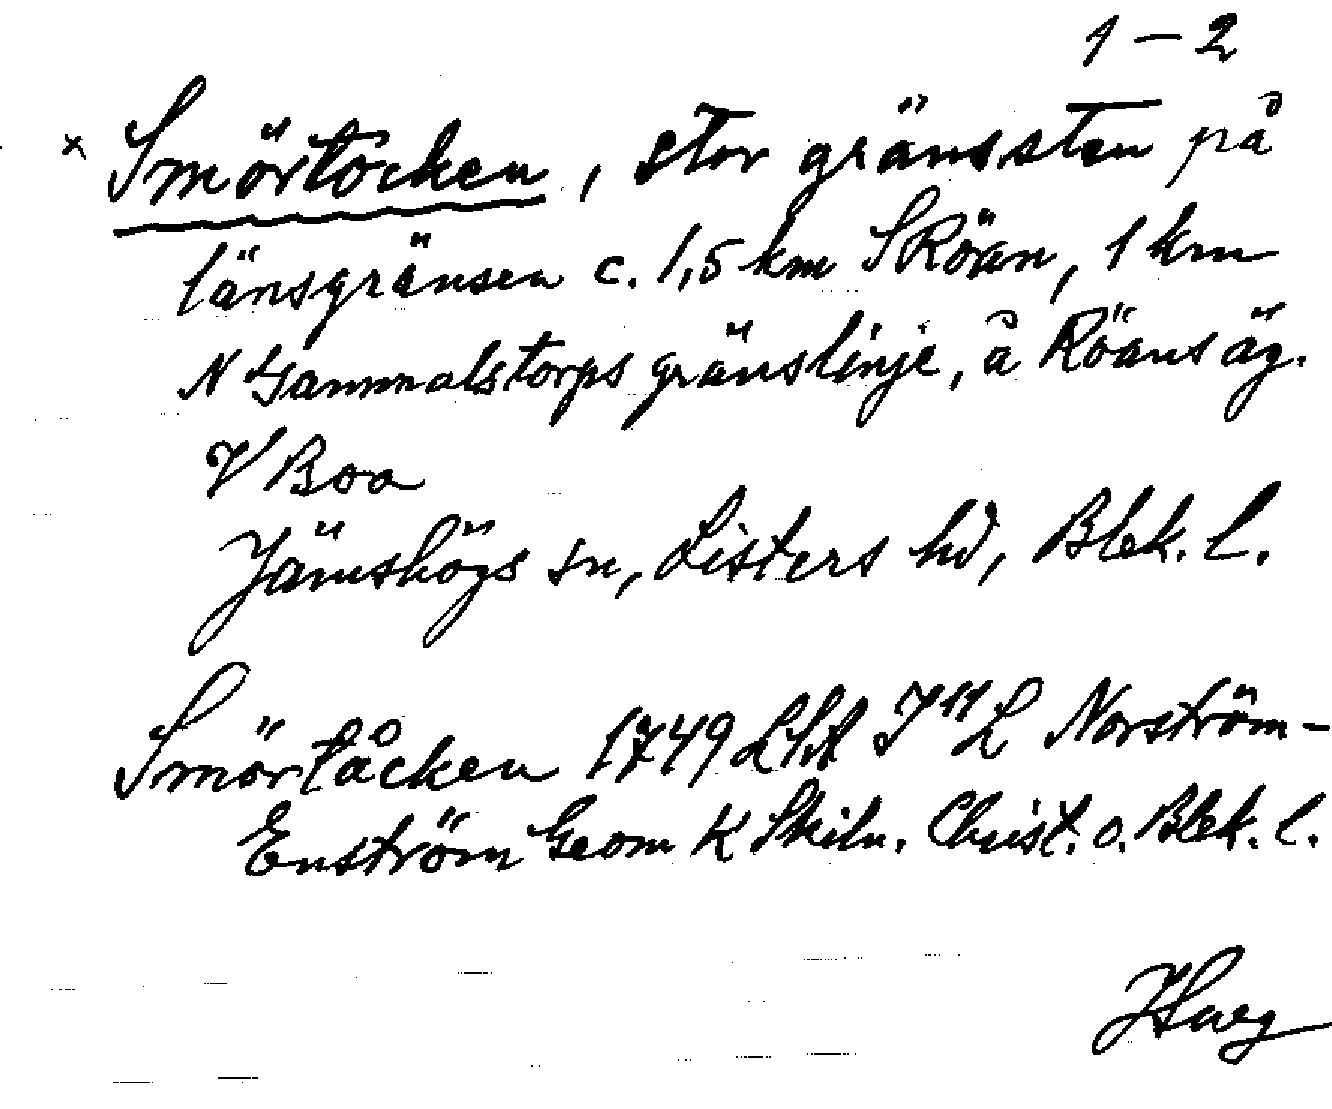 1 – 2
x Smörtocken, stor gränssten på
länsgränsen c. 1,5 km S Röan, 1 km
N Gammalstorps gränslinje, å Röans äg.
V Boa
Jämshögs sn, Listers hd, Blek. l.
Smörtåcken 1749 LSA J11 L Norström-
Enström Geom K Skiln. Christ. o. Blek. l.